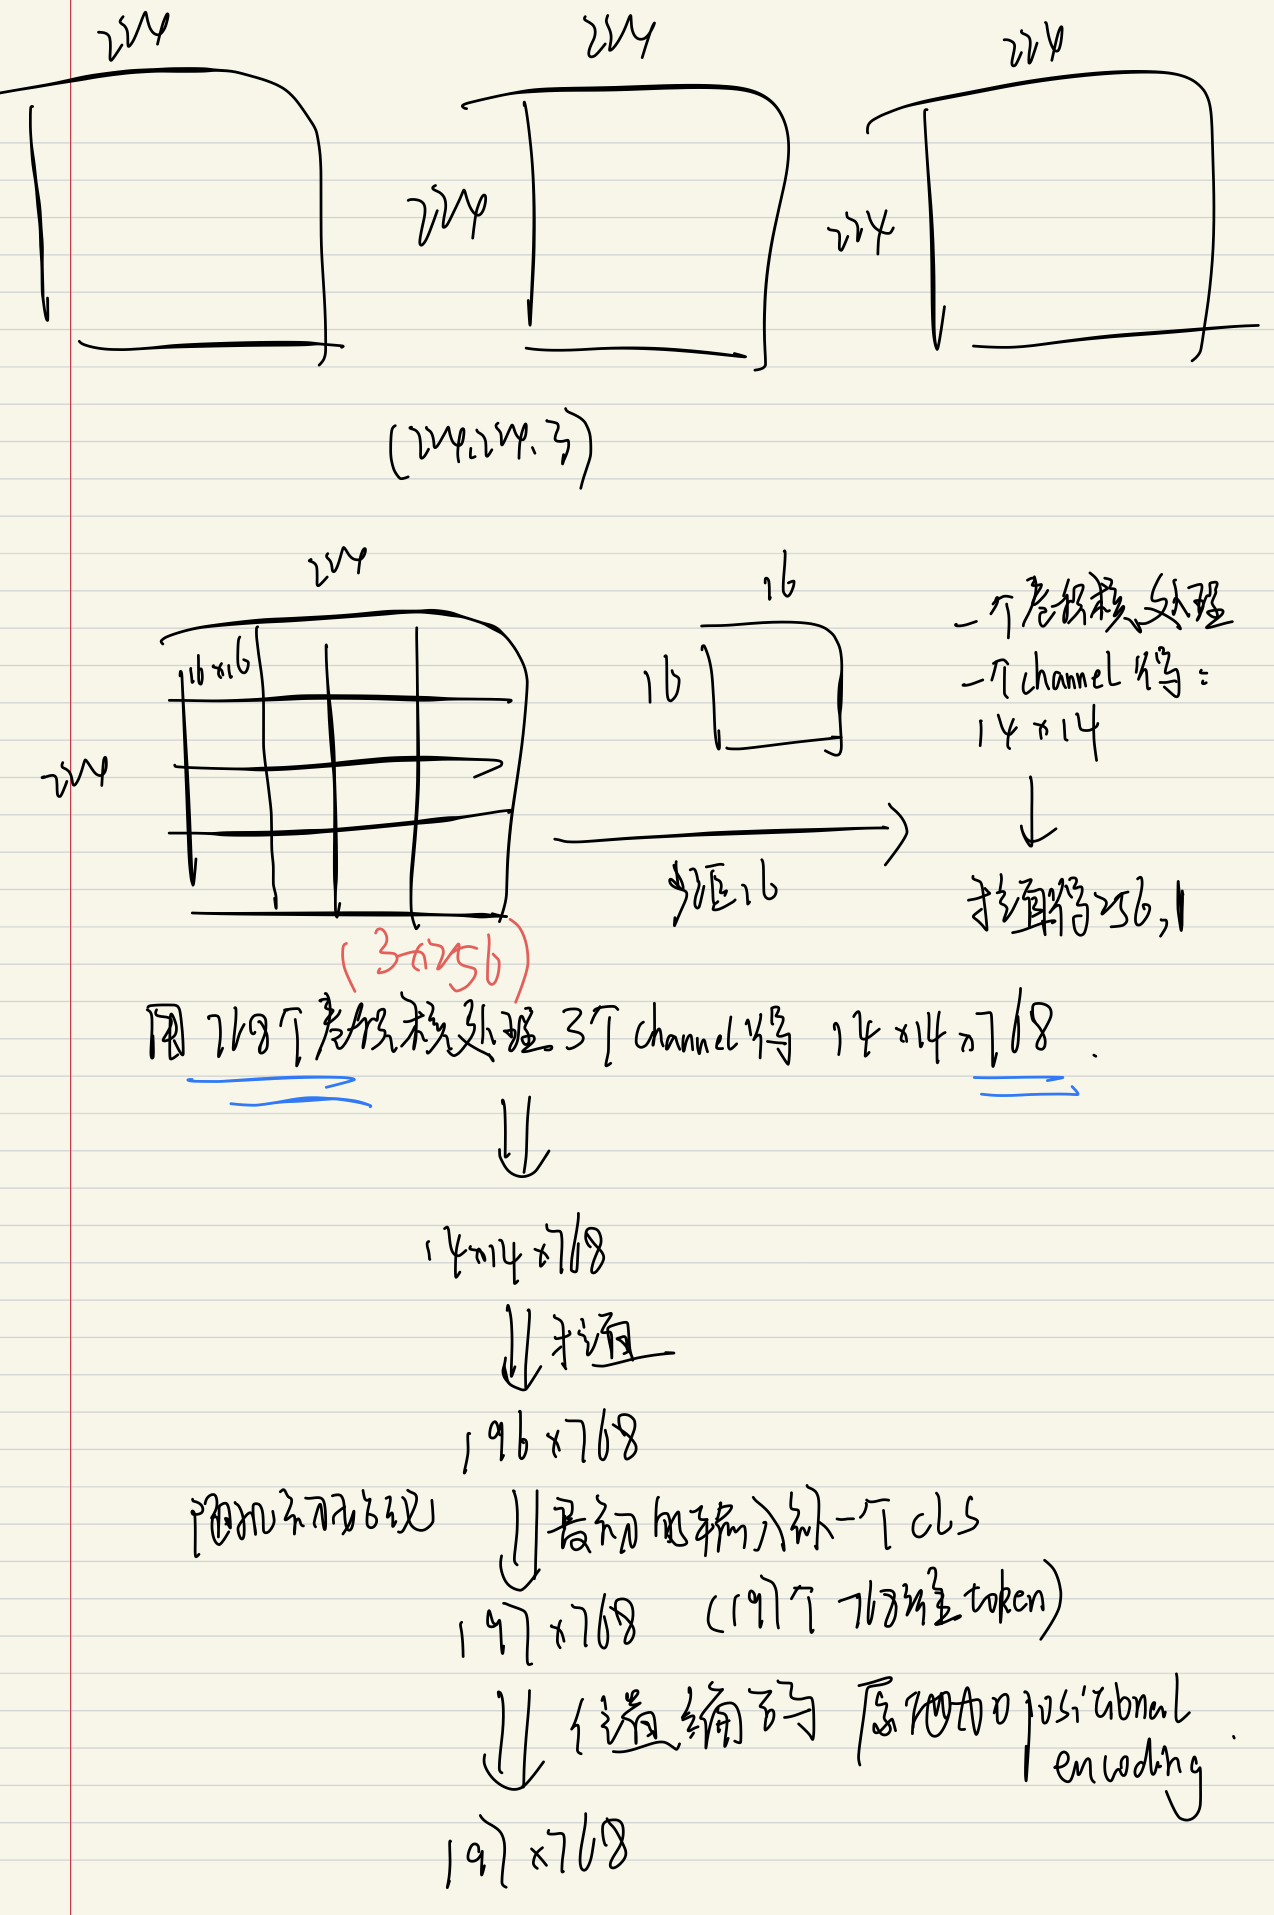 224 224 224
224 224
(224,224,3)
224
16×16
224
16
16
步距16
一个卷积核处理
一个channel得:
14×14
拉直得256,1
(3×256)
用768个卷积核处理3个channel得 14×14×768.
14×14×768
拉直
196×768
随机初始化 最初的输入补一个CLS
197×768 (197个768维token)
位置编码 原地加positional
encoding.
197×768